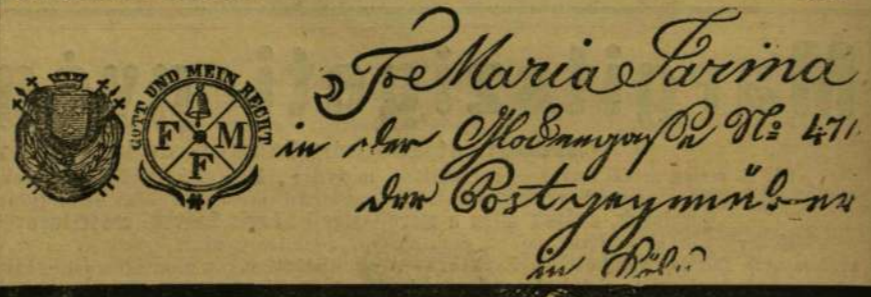 GOTT UND MEIN RECHT
F M
F
Fr. Maria Farina
in der Glockengasse No 4711
der Post gegenüber
in Köln